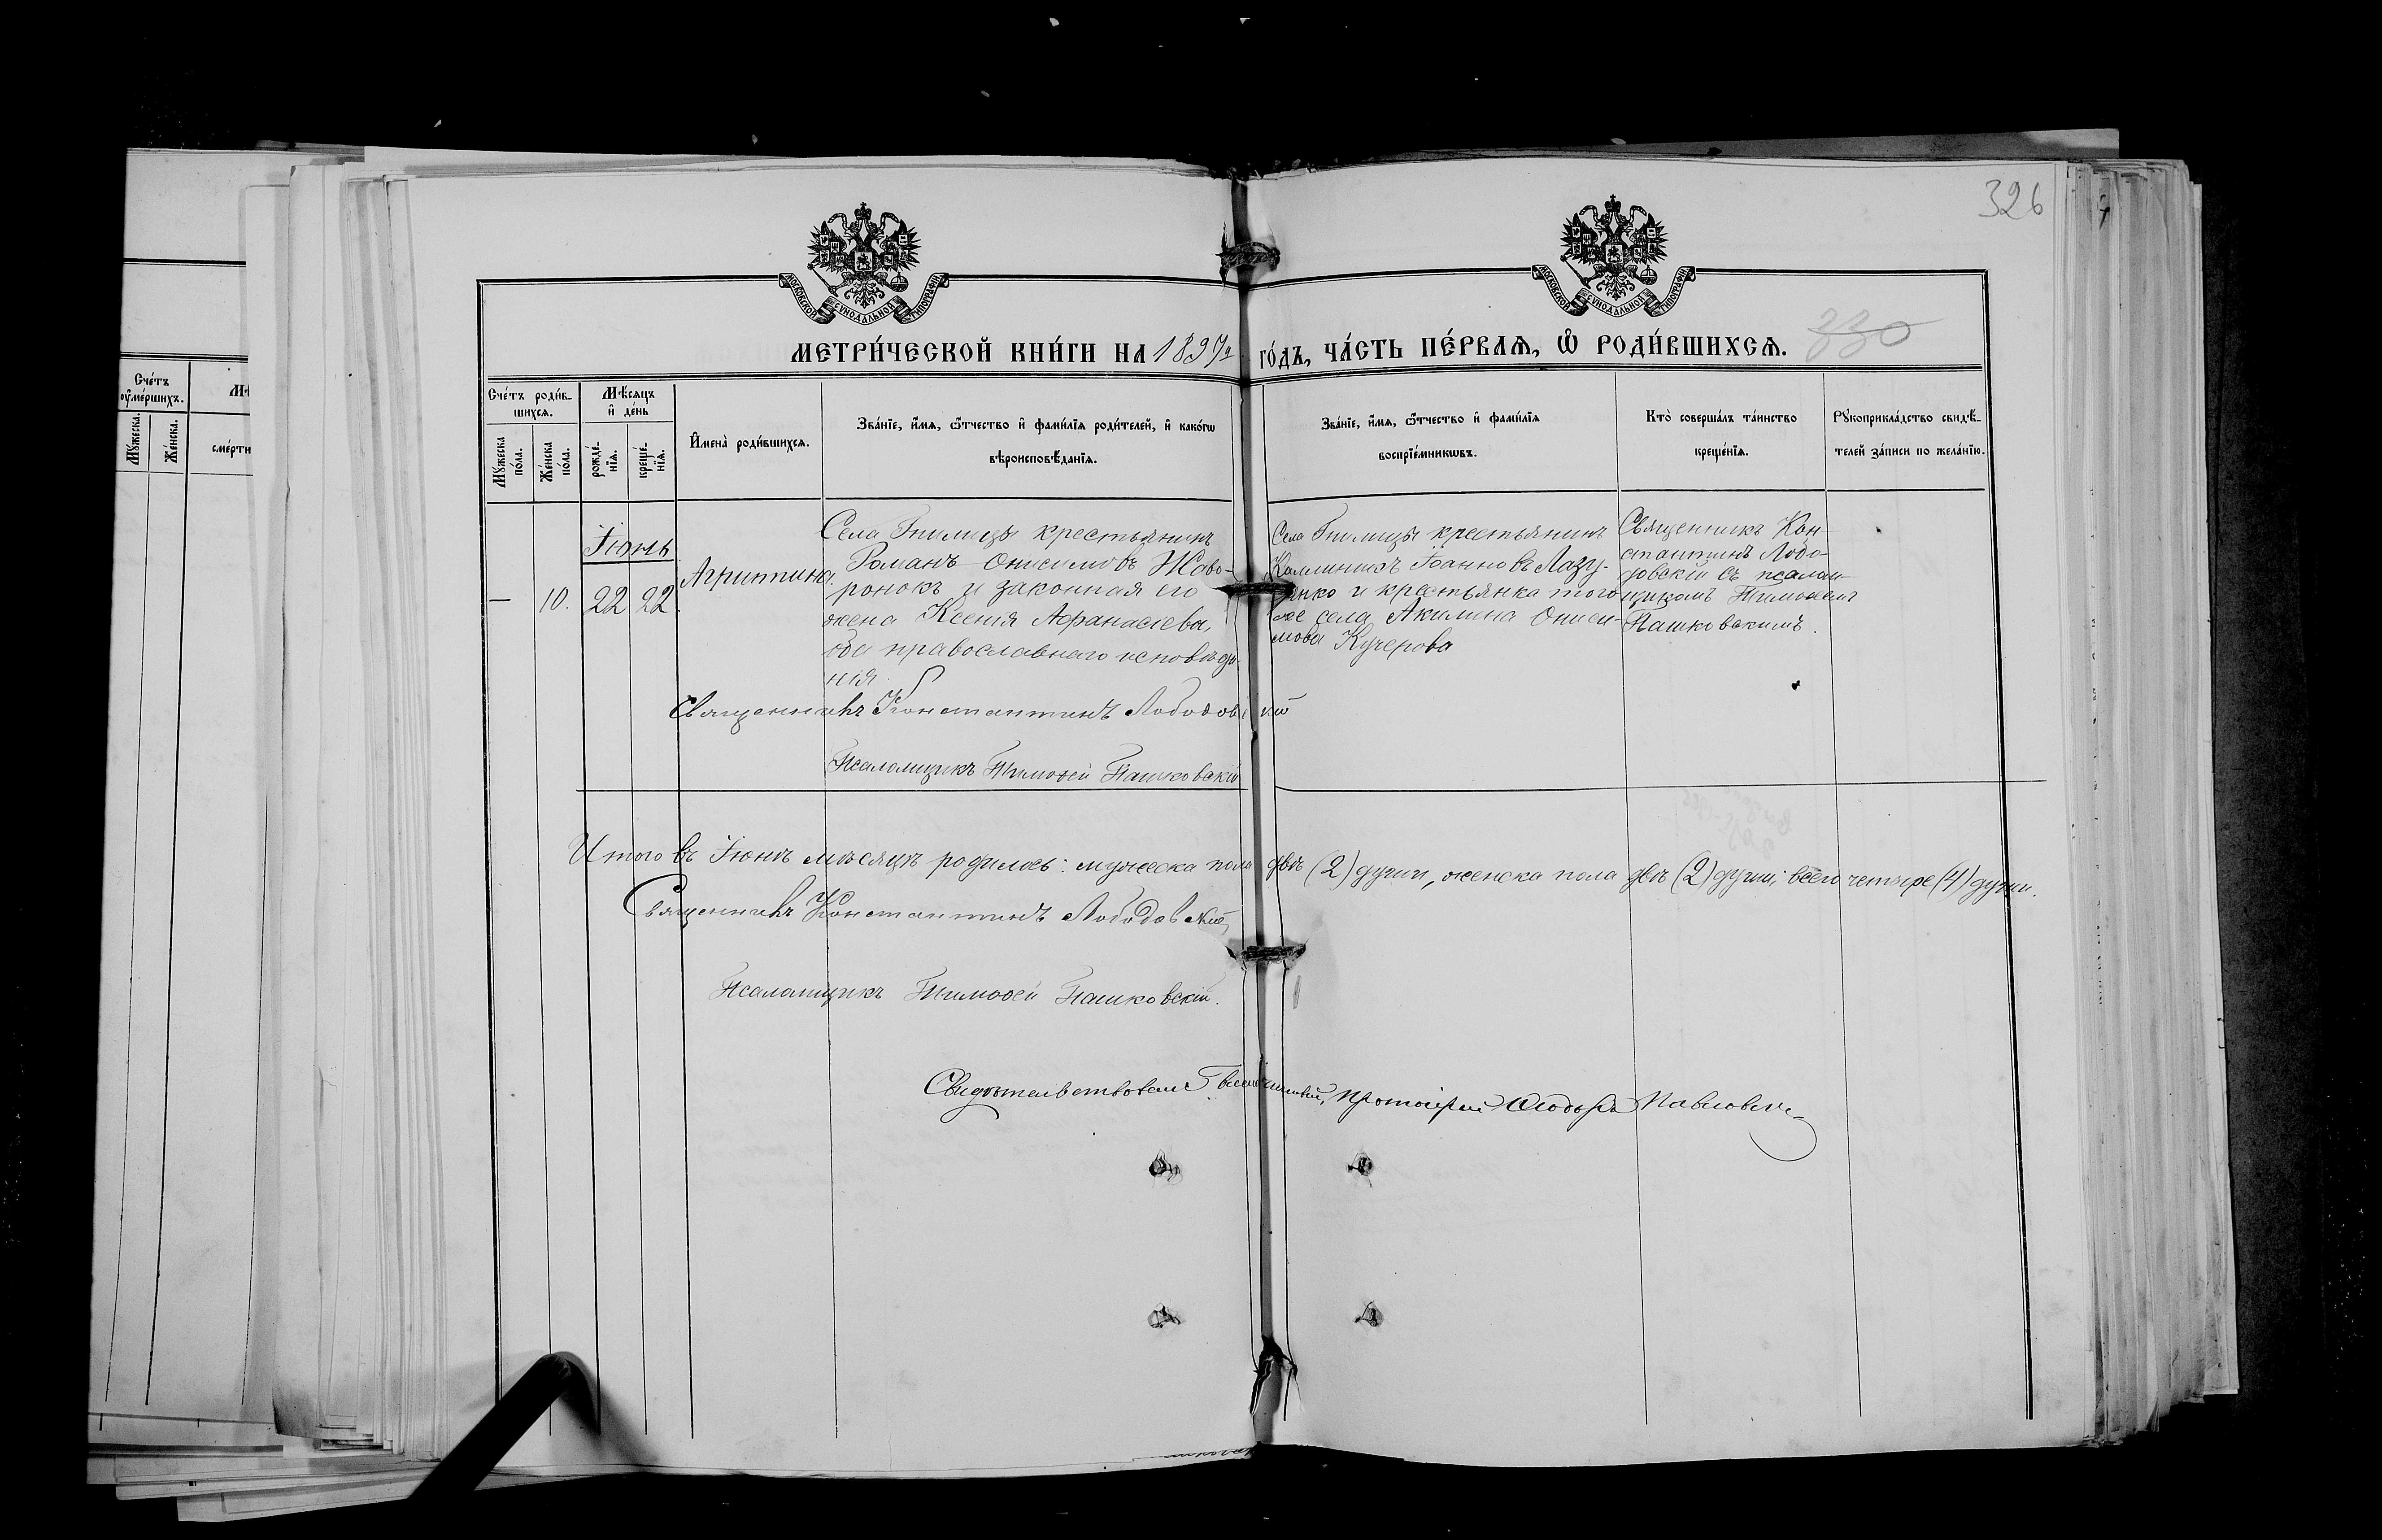 326
МОСКОВСКОЙ СѴНОДАЛЬНОЙ ТИПОГРАФІИ
МОСКОВСКОЙ СѴНОДАЛЬНОЙ ТИПОГРАФІИ
МЕТРИ́ЧЕСКОЙ КНИ́ГИ НА 1897 ГО́ДЪ, ЧА́СТЬ ПЕ́РВАѦ, Ѡ҆ РОДИ́ВШИХСѦ.
330
Сче́тъ оу҆ме́ршихъ.
Мꙋ́жеска.
Же́нска.
сме́рти
Сче́тъ роди́в-
шихсѧ.
Мꙋ́жеска по́ла.
Же́нска по́ла.
Мѣ́сѧцъ
и҆ де́нь
рожде́-
нїѧ.
креще́-
нїѧ.
И҆мена̀ роди́вшихсѧ.
Зва́нїе, и҆́мѧ, ѻ҆́тчество и҆ фами́лїѧ роди́телей, и҆ како́гѡ
вѣроисповѣ́данїѧ.
Зва́нїе, и҆́мѧ, ѻ҆́тчество и҆ фами́лїѧ
воспрїе́мникѡвъ.
Кто̀ соверша́лъ та́инство
креще́нїѧ.
Рꙋкоприкла́дство свидѣ́-
телей за́писи по жела́нїю.
Іюнь
—
10.
22
22.
Агриппина.
Села Гнилицы крестьянинъ
Романъ Онисимовъ Жаво-
ронокъ и законная его
жена Ксенія Афанасіева,
оба православнаго исповѣда-
нія
Села Гнилицы крестьянинъ
Каллиникъ Іоанновъ Лазу-
ренко и крестьянка того
же села Акилина Ониси-
мова Кучерова
Священникъ Кон-
стантинъ Лобо-
довскій съ псалом-
щикомъ Тимоѳеемъ
Пашковскимъ.
Священникъ Константинъ Лободовскій
Псаломщикъ Тимоѳей Пашковскій
Итого въ Іюнѣ мѣсяцѣ родилось: мужеска пола двѣ (2) души, женска пола двѣ (2) души; всего четыре (4) души.
Священникъ Константинъ Лободовскій,
Псаломщикъ Тимоѳей Пашковскій.
Свидѣтельствовалъ Благочинный, Протоіерей Ѳеодоръ Павловскій